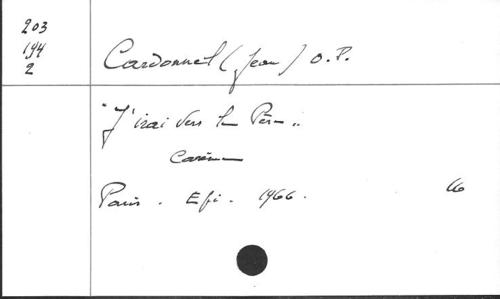 203
194
2
Cardonnel (Jean) O.P.
"J'irai vers le Père"
Carême
Paris. Efi. 1966.